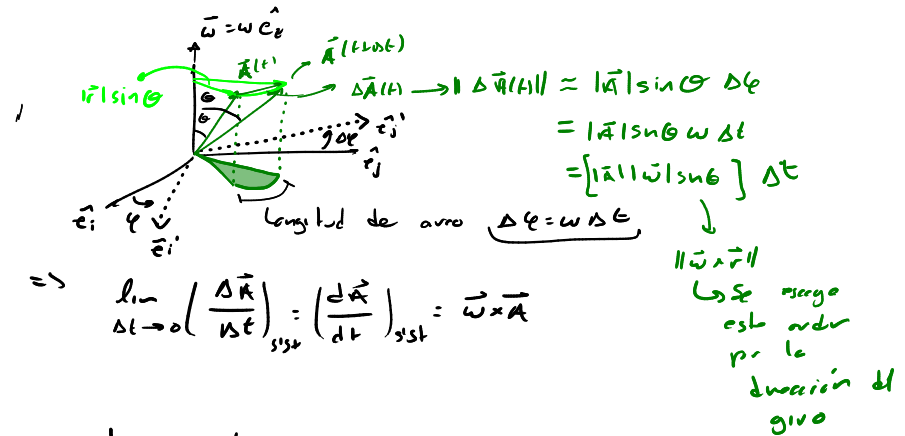 ω⃗ = ω ê_z
A⃗(t)
A⃗(t+Δt)
|r⃗|sinθ
θ
θ
ΔA⃗(t) → ‖ΔA⃗(t)‖ ≈ |A⃗|sinθ Δφ
= |A⃗|senθ ω Δt
= [|A⃗||ω⃗|senθ] Δt
ê_j'
Δφ
ê_j
ê_i
φ
ê_i'
Longitud de arco Δφ = ωΔt
‖ω⃗×r⃗‖
↳ Se escoge
este orden
por la
dirección del
giro
=>
lim Δt→0 (ΔA⃗/Δt)_sist = (dA⃗/dt)_sist = ω⃗×A⃗